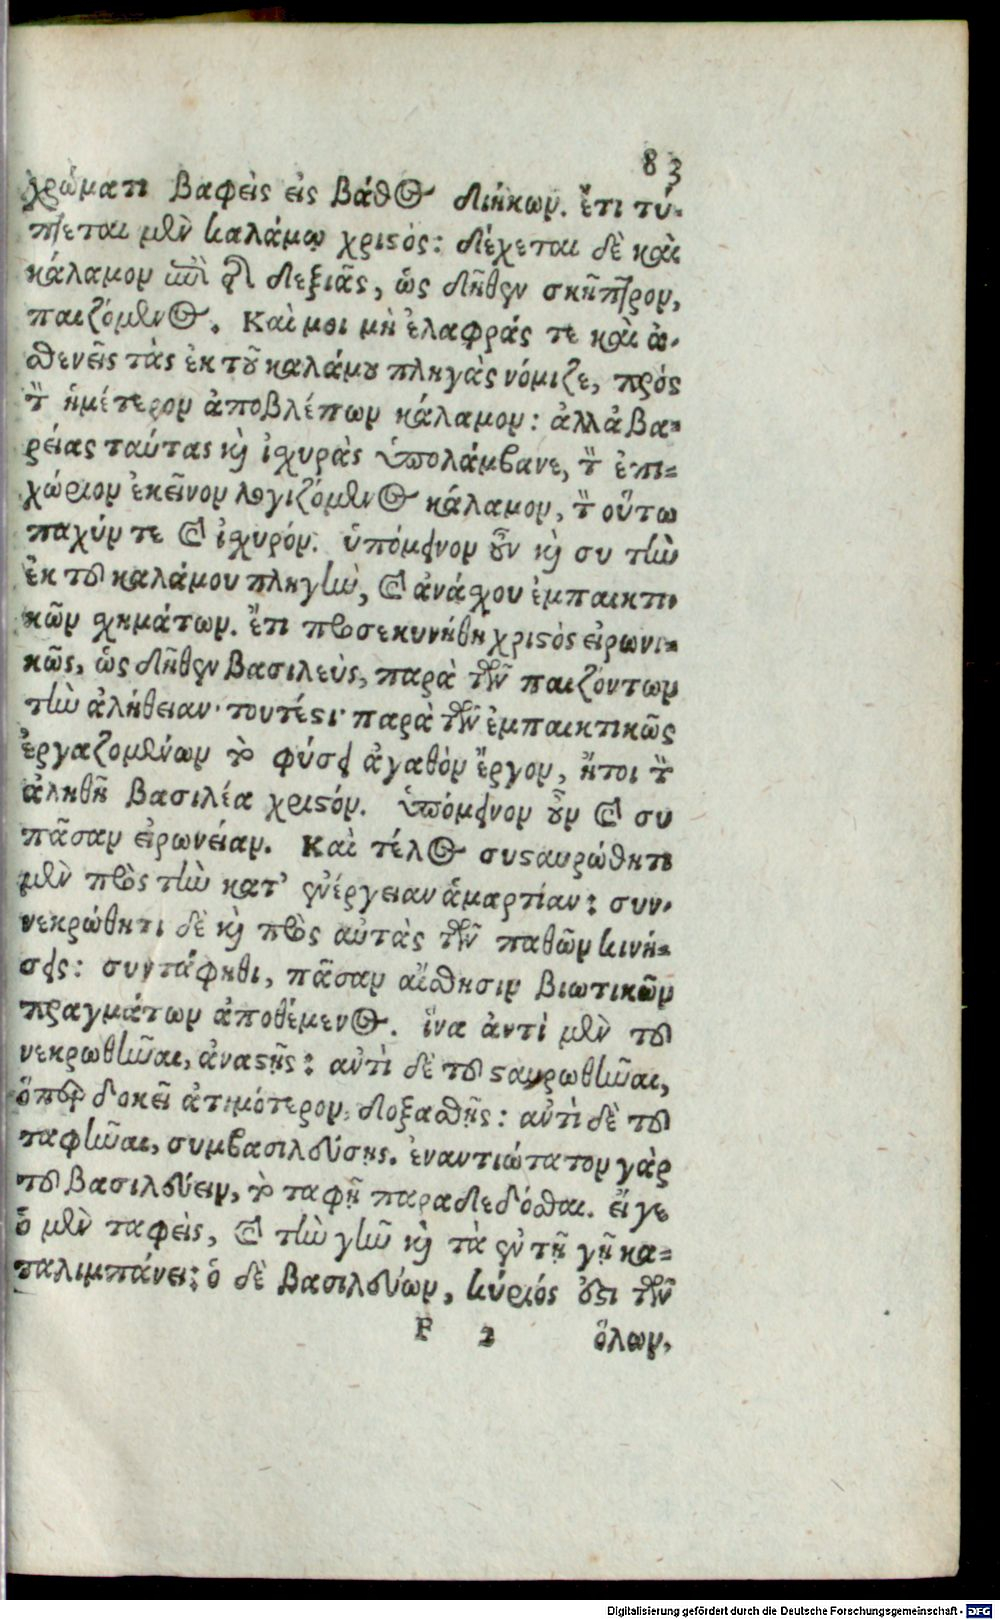 83
χρώματι βαφεὶς εἰς βάθος διήκων. ἔτι τύ-
πτεται μὲν καλάμῳ χριστός: δέχεται δὲ καὶ
κάλαμον ἐπὶ τ̀ δεξιᾶς, ὡς δῆθεν σκῆπτρον,
παιζόμενος. Καὶ μοι μὴ ἐλαφράς τε καὶ ἀ-
σθενεῖς τὰς ἐκ τοῦ καλάμου πληγὰς νόμιζε, πρός
τ̀ ἡμέτερον ἀποβλέπων κάλαμον: ἀλλὰ βα-
ρείας ταύτας καὶ ἰσχυρὰς ὑπολάμβανε, τ̀ ἐπι-
χώριον ἐκεῖνον λογιζόμενος κάλαμον, τ̀ οὕτω
παχύν τε καὶ ἰσχυρόν. ὑπόμεινον οὖν καὶ συ τὴν
ἐκ τοῦ καλάμου πληγὴν, καὶ ἀνάσχου ἐμπαικτι-
κῶν σχημάτων. ἔτι προσεκυνήθη χριστὸς εἰρωνι-
κῶς, ὡς δῆθεν βασιλεὺς, παρὰ τῶν παιζόντων
τὴν ἀλήθειαν· τουτέστι· παρὰ τῶν ἐμπαικτικῶς
ἐργαζομένων τὸ φύσει ἀγαθὸν ἔργον, ἤτοι τ̀
ἀληθῆ βασιλέα χριστόν. ὑπόμεινον οὖν καὶ συ
πᾶσαν εἰρωνείαν. Καὶ τέλος συσταυρώθητι
μὲν πρὸς τὴν κατ' ἐνέργειαν ἁμαρτίαν: συν-
νεκρώθητι δὲ καὶ πρὸς αὐτὰς τῶν παθῶν κινή-
σεις: συντάφηθι, πᾶσαν αἴσθησιν βιωτικῶν
πραγμάτων ἀποθέμενος. ἵνα ἀντὶ μὲν τοῦ
νεκρωθῆναι, ἀναστῇς: ἀντὶ δὲ τοῦ σταυρωθῆναι,
ὅπερ δοκεῖ ἀτιμότερον, δοξασθῇς: ἀντὶ δὲ τοῦ
ταφῆναι, συμβασιλεύσῃς. ἐναντιώτατον γὰρ
τοῦ βασιλεύειν, τὸ ταφῇ παραδεδόσθαι. εἴγε
ὁ μὲν ταφεὶς, καὶ τὴν γῆν καὶ τὰ ἐν τῇ γῇ κα-
ταλιμπάνει: ὁ δὲ βασιλεύων, κύριός ἐστι τῶν
F 2 ὅλων,
Digitalisierung gefördert durch die Deutsche Forschungsgemeinschaft - DFG